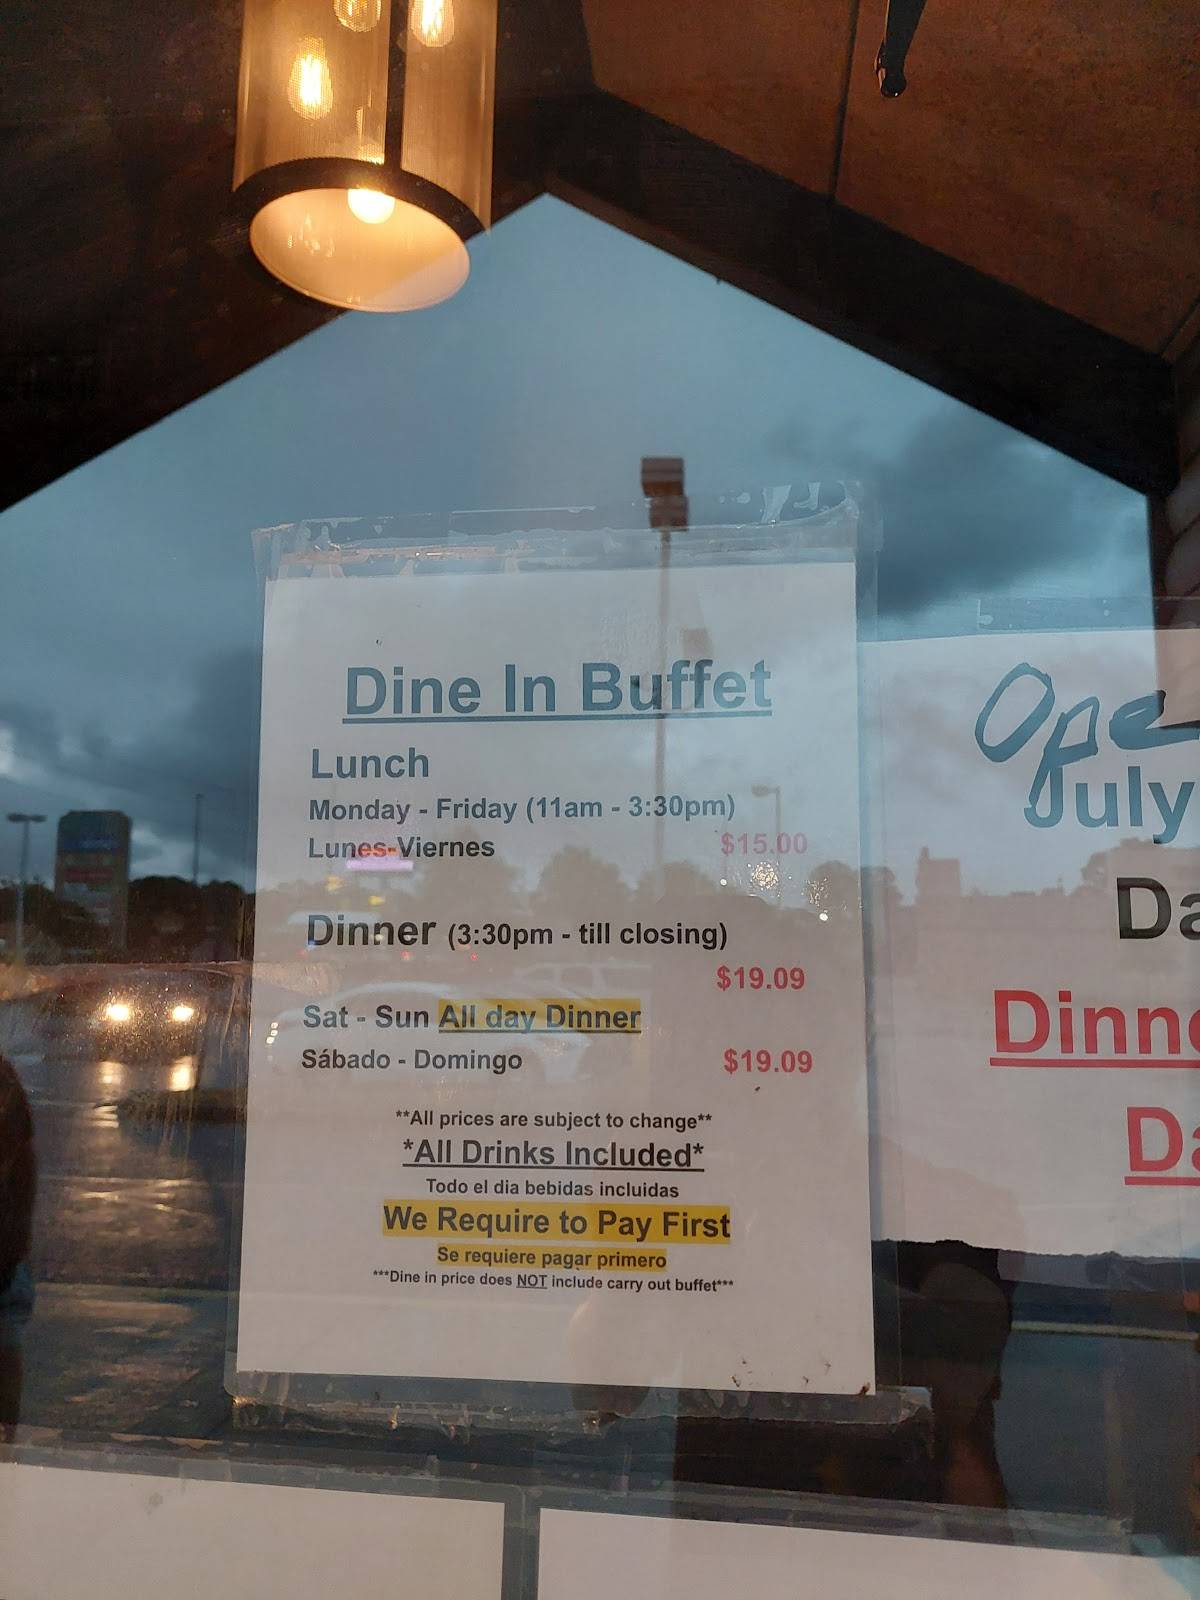 Dine In Buffet
Lunch
Monday - Friday (11am - 3:30pm)
Lunes-Viernes $15.00
Dinner (3:30pm - till closing)
$19.09
Sat - Sun All day Dinner
Sábado - Domingo $19.09
**All prices are subject to change**
*All Drinks Included*
Todo el dia bebidas incluidas
We Require to Pay First
Se requiere pagar primero
***Dine in price does NOT include carry out buffet***
Ope
July
Da
Dinn
Da